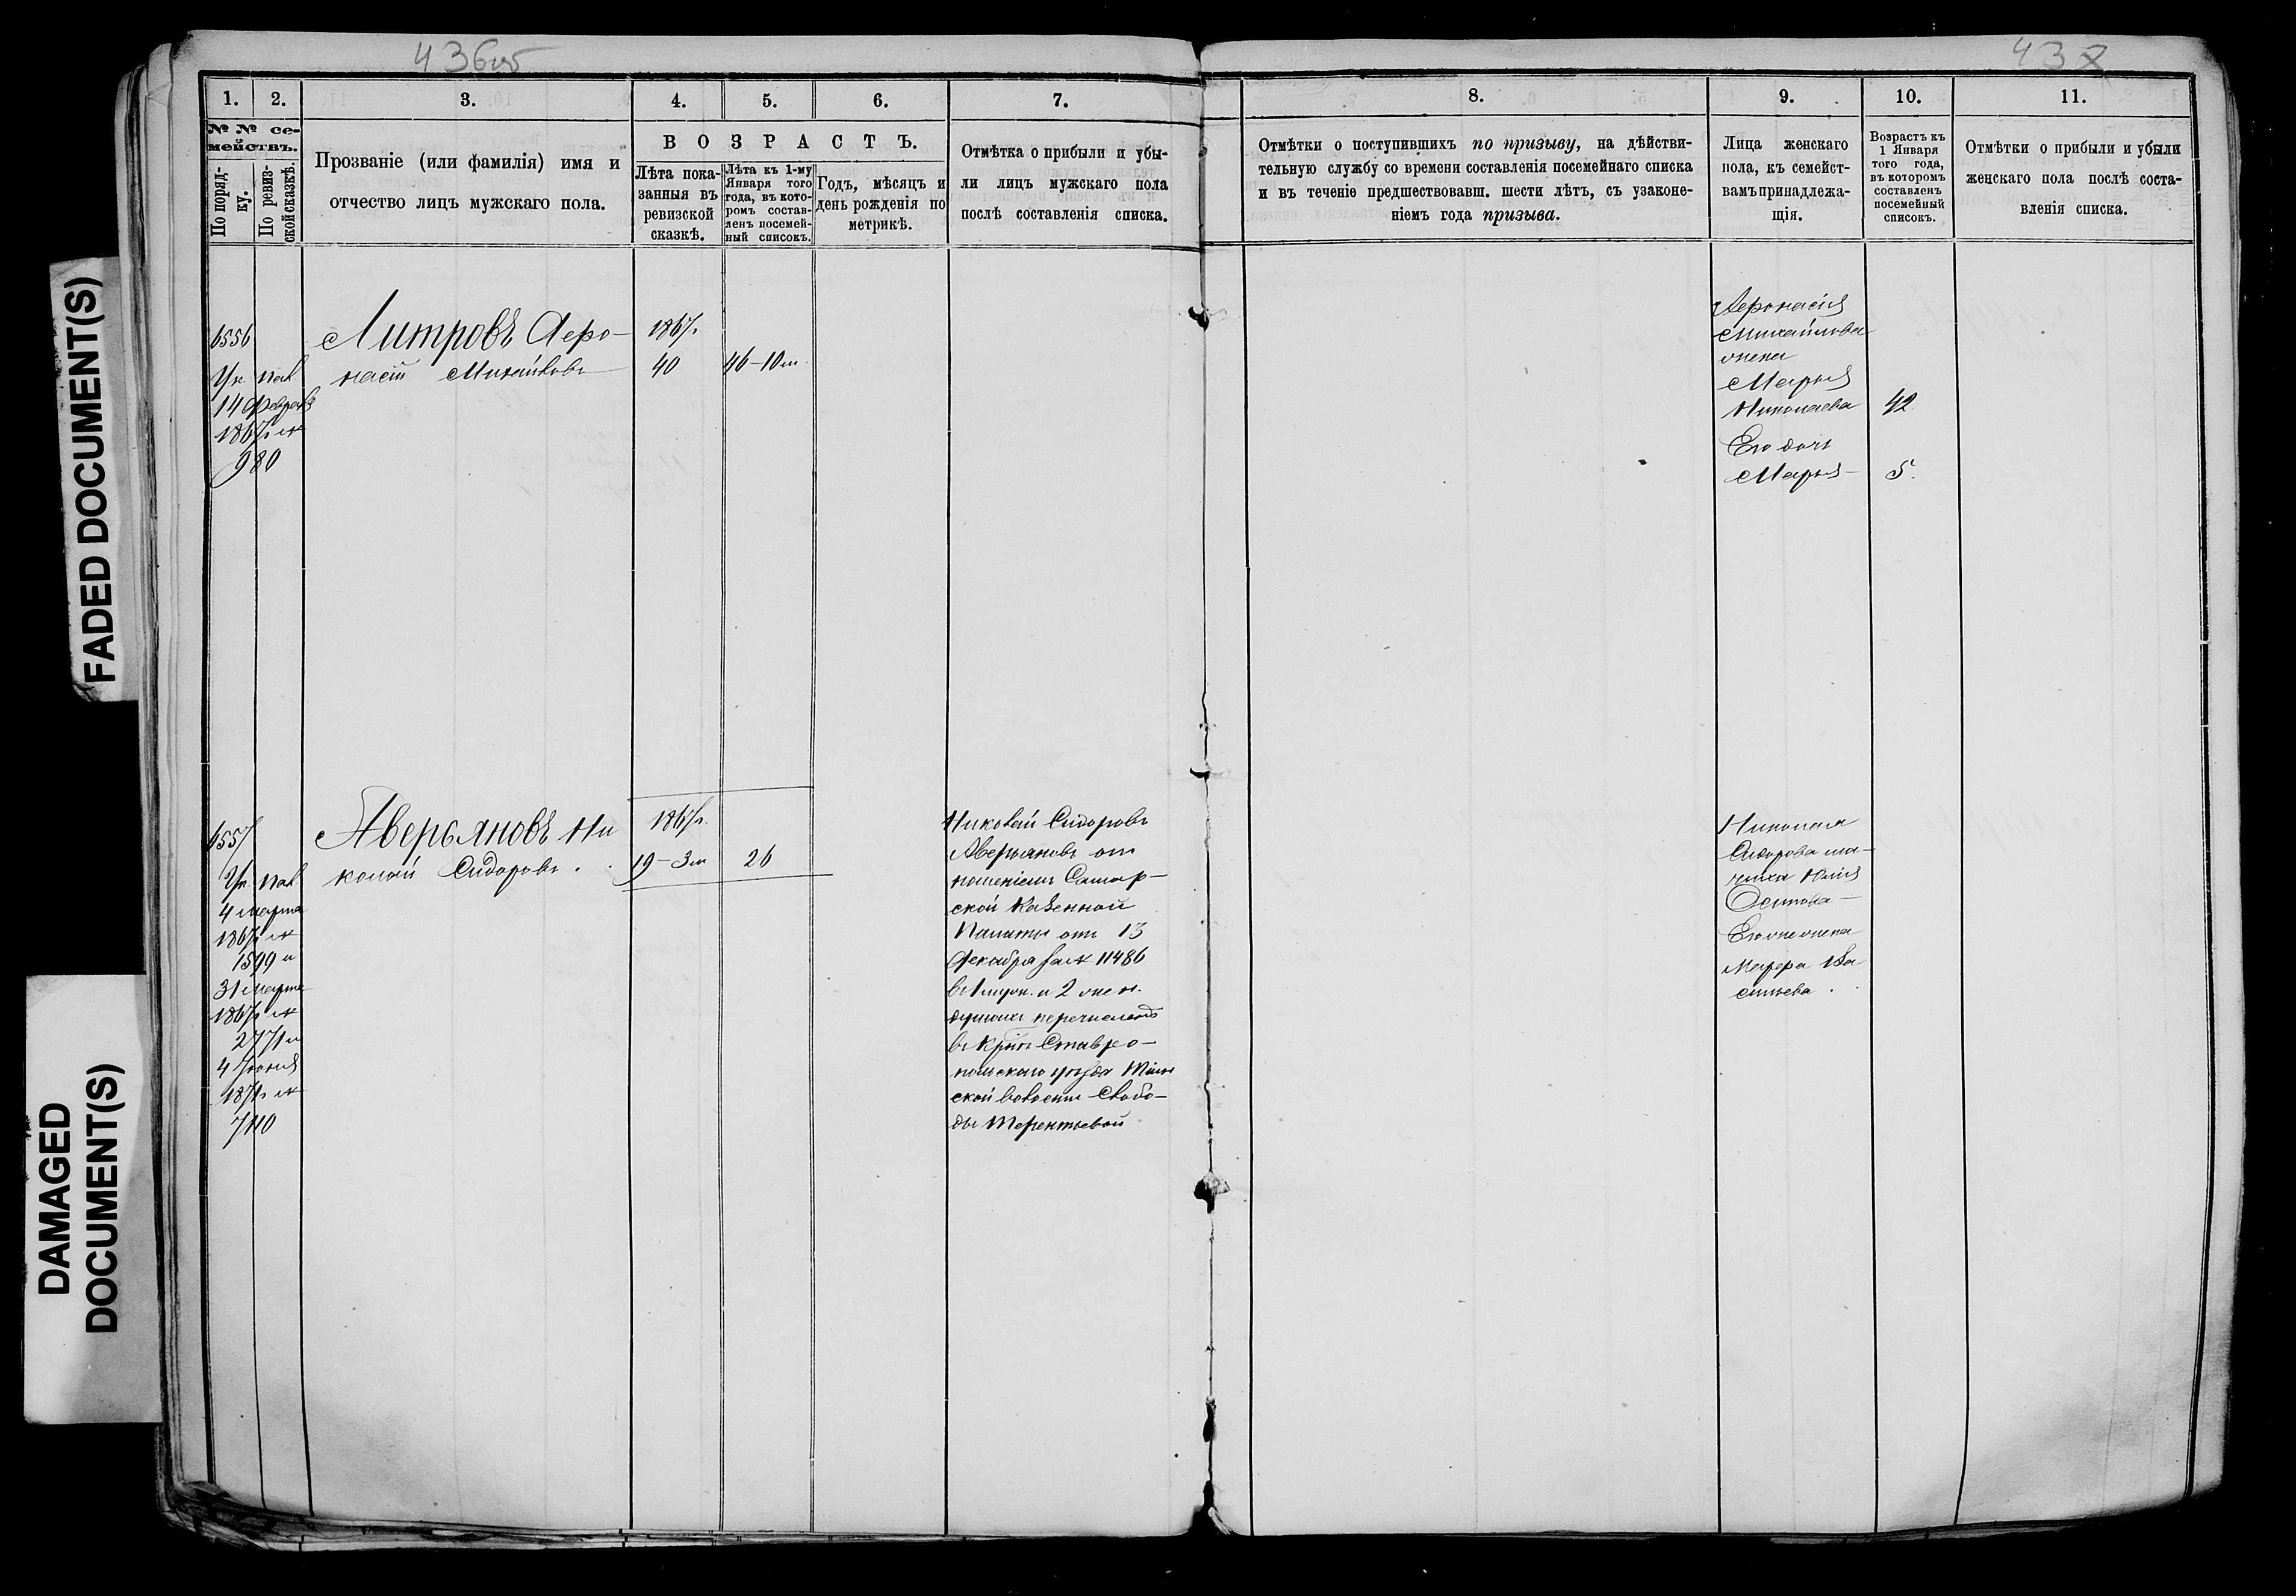 436об
437
FADED DOCUMENT(S)
DAMAGED
DOCUMENT(S)
1.
2.
3.
4.
5.
6.
7.
№ № се-
мействъ.
По поряд-
ку.
По ревиз-
ской сказкѣ.
Прозваніе (или фамилія) имя и
отчество лицъ мужскаго пола.
ВОЗРАСТЪ.
Лѣта пока-
занныя въ
ревизской
сказкѣ.
Лѣта къ 1-му
Января того
года, въ кото-
ромъ состав-
ленъ посемей-
ный списокъ.
Годъ, мѣсяцъ и
день рожденія по
метрикѣ.
Отмѣтка о прибыли и убы-
ли лицъ мужскаго пола
послѣ составленія списка.
6556
Ук. пал.
14 Февраля
1867 г. №
980
Литровъ Афо-
насій Михайловъ
1867 г.
40
46-10 м.
6557
Ук. пал.
4 марта
1867 г. №
1599 и
31 марта
1867 г. №
2771 и
4 Іюня
1871 г. №
7110
Аверьяновъ Ни
колай Сидоровъ.
1867 г.
19-3 м.
26
Николай Сидоровъ
Аверьяновъ от
ношеніемъ Самар-
ской Казенной
Палаты отъ 13
Декабря за № 11486
въ 1 муж. и 2 жен.
душахъ перечисленъ
въ Крѣне Ставро-
польскаго уѣзда
ской волости Слобо-
ды Терентьевой
8.
9.
10.
11.
Отмѣтки о поступившихъ по призыву, на дѣйстви-
тельную службу со времени составленія посемейнаго списка
и въ теченіе предшествовавш. шести лѣтъ, съ узаконе-
ніемъ года призыва.
Лица женскаго
пола, къ семейст-
вамъ принадлежа-
щія.
Возрастъ къ
1 Января
того года,
въ которомъ
составленъ
посемейный
списокъ.
Отмѣтки о прибыли и убыли
женскаго пола послѣ соста-
вленія списка.
Афонасія
Михайлова
жена
Марья
Николаева 42
Его дочь
Марья- 5.
Николая
Сидорова ма-
чиха Юлія
Осипова-
Его же жена
Марфа Ва
сильева.